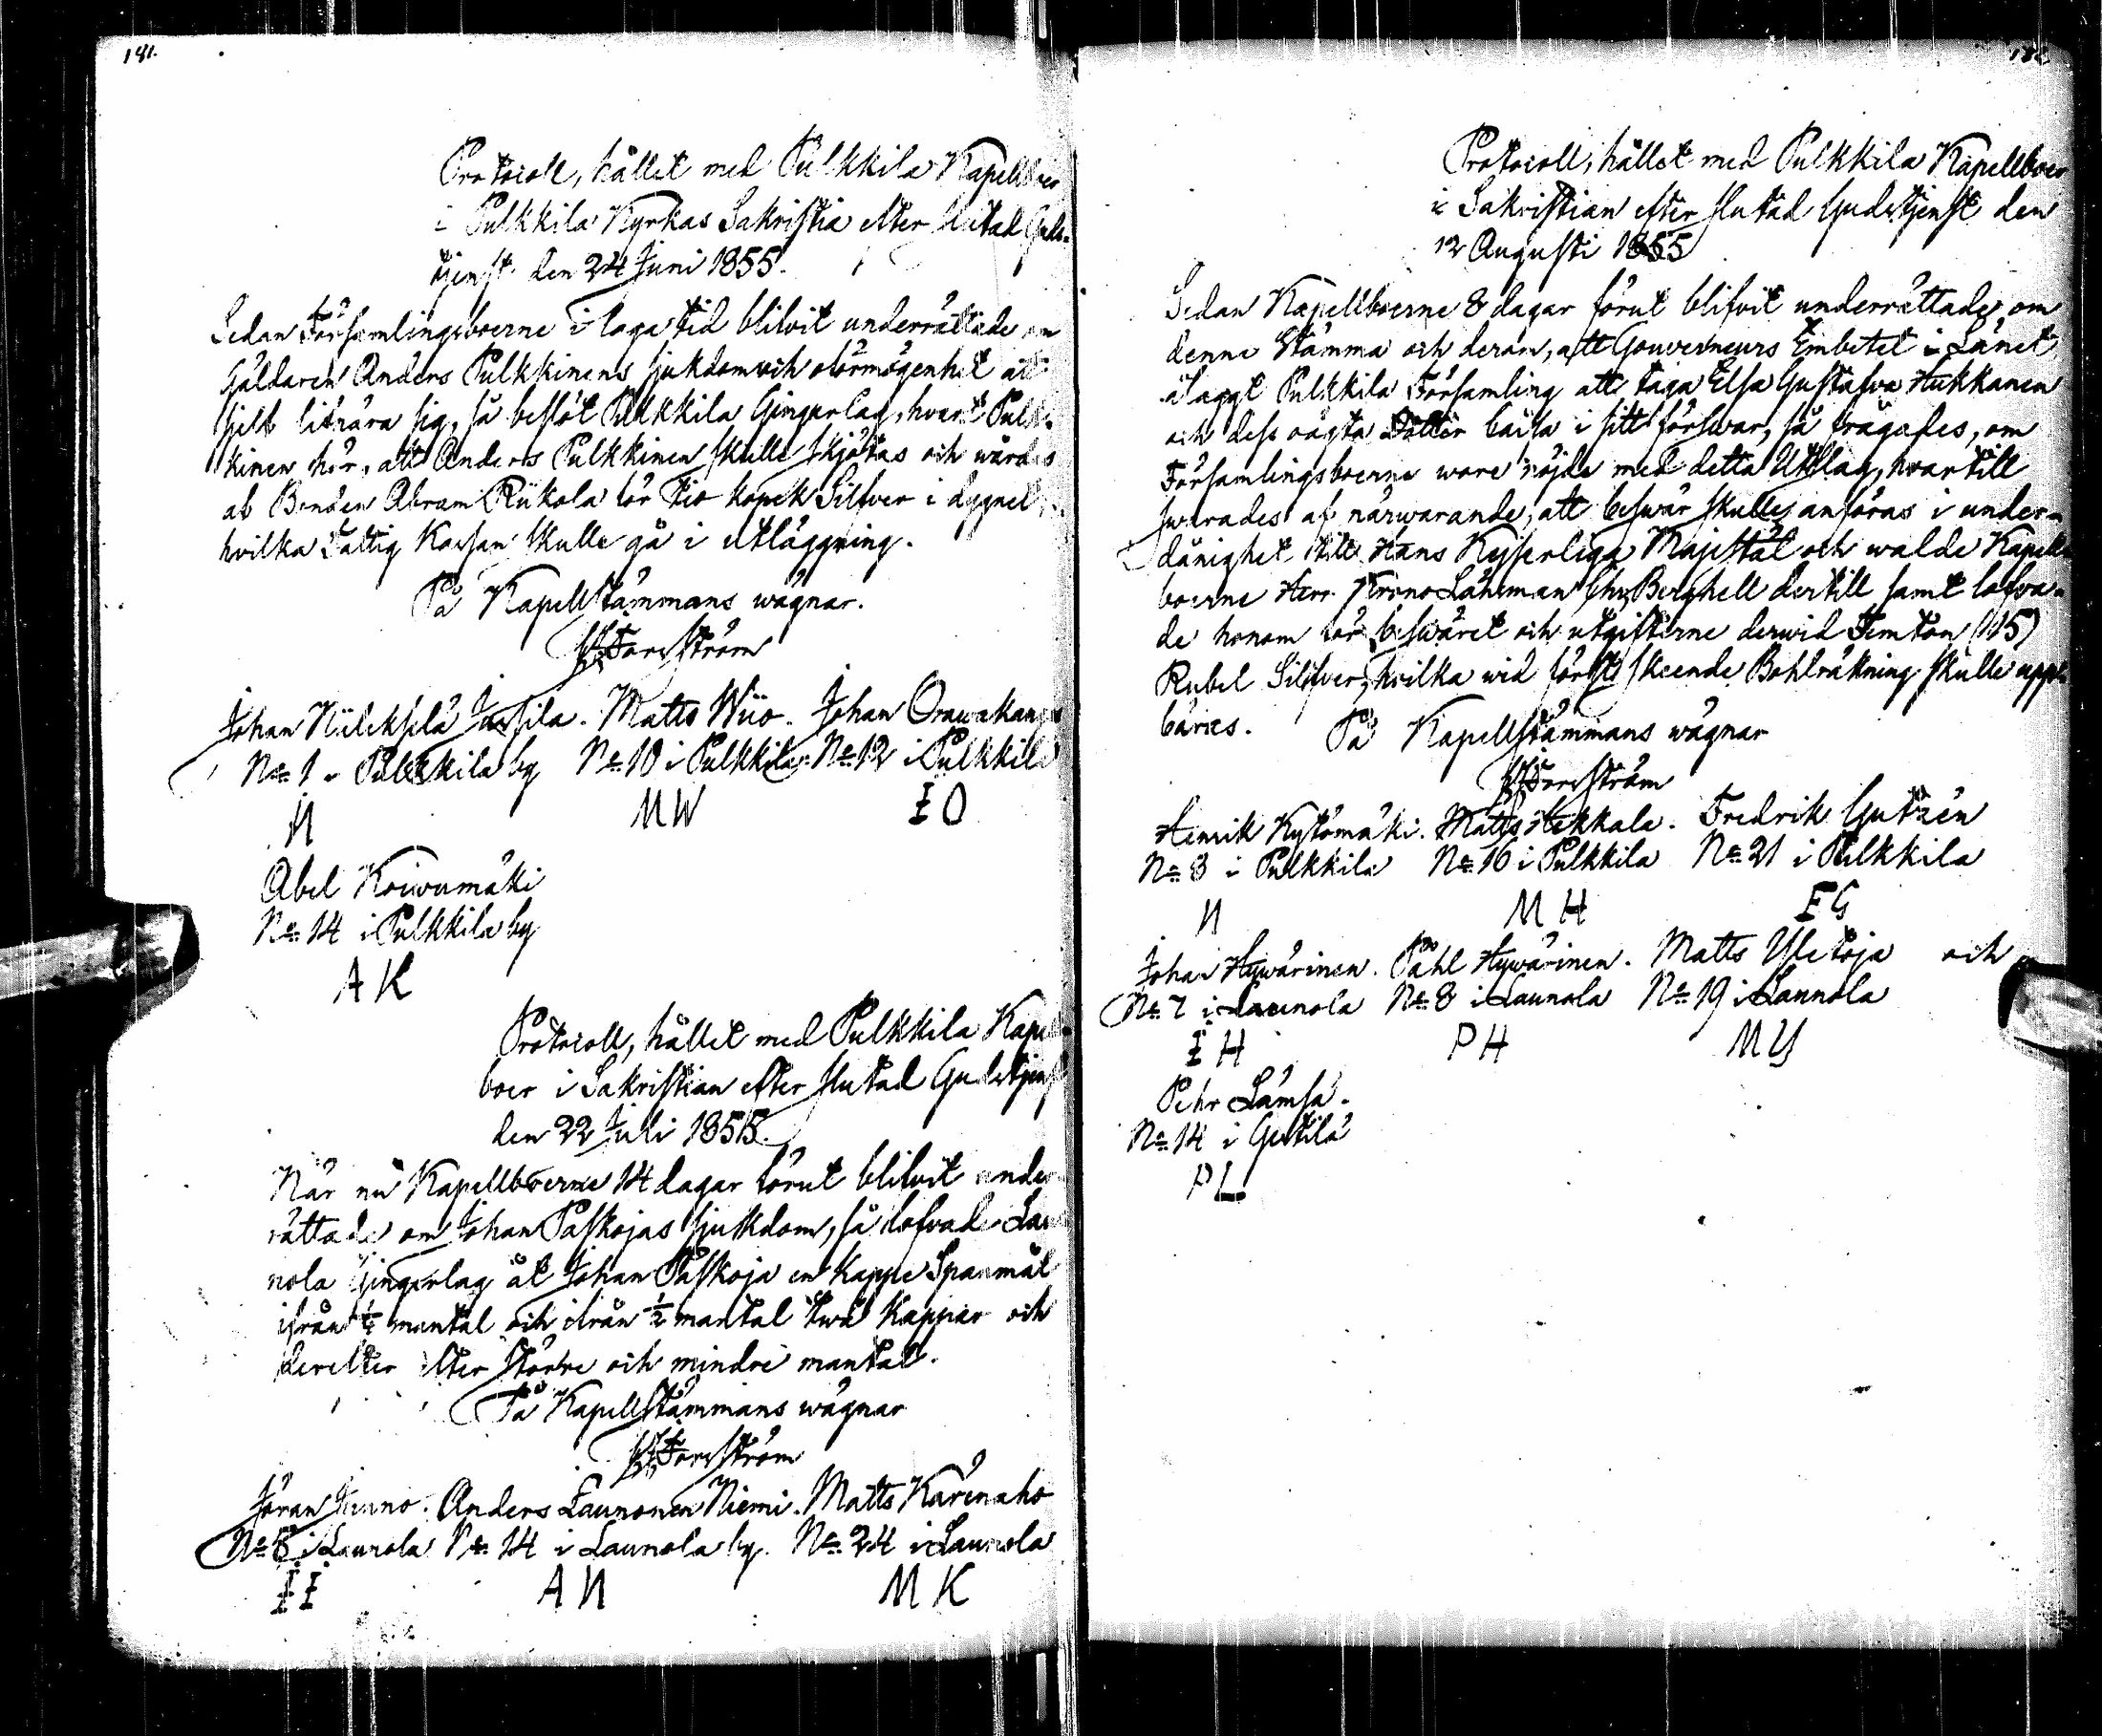 181.
Protocoll, hållet med Pulkkila Kapellboer
i Pulkkila Kyrkas Sakristia efter slutad Guds-
tjenst den 24 Juni 1855.
Sedan Församlingsboerne i laga tid blifvit underrättade om
Gäldaren Anders Pulkkinens sjukdom och oförmögenhet att
sjelf lifnära sig, så beslöt Pulkkila Gingerlag, hvart Pulk-
kinen hör, att Anders Pulkkinen skulle skjötas och wårdas
af Bonden Abram Riikola för tio kopek Silfver i dygnet,
hvilka Fattig Kassan skulle gå i utläggning.
På Kapellstämmans wägnar.
Forsström
Johan Niileksela Jussila. Matts Wiio. Johan Orawakangas
No 1 i Pulkkila by No 10 i Pulkkila No 12 i Pulkkila
N MW IO
Abel Koiwumäki
No 14 i Pulkkila by
AK
Protocoll, hållet med Pulkkila Kapell-
boer i Sakristian efter slutad Gudstjenst
den 22 Juli 1855.
När nu Kapellboerne 14 dagar förut blifvit under-
rättade om Johan Paskojas sjukdom, så lofvade Lau-
nola Gingerlag åt Johan Paskoja en kappe Spanmål
ifrån 1/4 mantal och ifrån 1/2 mantal twå Kappar och
derefter efter större och mindre mantal.
På Kapellstämmans wägnar
Forsström
Jöran Junno. Anders Launonen Niemi. Matts Kärenaho
No 5 i Launola No 14 i Launola by. No 24 i Launola
II AN MK
182
Protocoll, hållet med Pulkkila Kapellboer
i Sakristian efter slutad Gudstjenst den
12 Augusti 1855
Sedan Kapellboerne 8 dagar förut blifvit underrättade, om
denna Stämma och derom, att Gouverneurs Embetet i Länet
ålaggt Pulkkila Församling att taga Elsa Gustafva Hukkanen
och dess oägta Dotter Caisa i sitt förswar, så frågades, om
Församlingsboerne wore nöjde med detta Utslag, hvartill
swarades af närwarande, att beswär skulle anföras i under-
dånighet till Hans Kejserliga Majestät och walde Kapell-
boerne Herr KronoLänsman Berghell dertill samt lofva-
de honom för beswäret och utgifterne derwid Femton (15)
Rubel Silfver, hvilka wid först skeende Bohlräkning skulle upp-
bäres. På Kapellstämmans wägnar
Forsström
Henrik Kystömäki. Matts Hekkala. Fredrik Gutzén
No 3 i Pulkkila No 16 i Pulkkila No 21 i Pulkkila
N MH FG
Johan Hywärinen. Påhl Hywärinen. Matts Yletöja och
No 7 i Launola No 8 i Launola No 19 i Launola
IH PH MY
Pehr Lämsä.
No 14 i Gestilä
PL